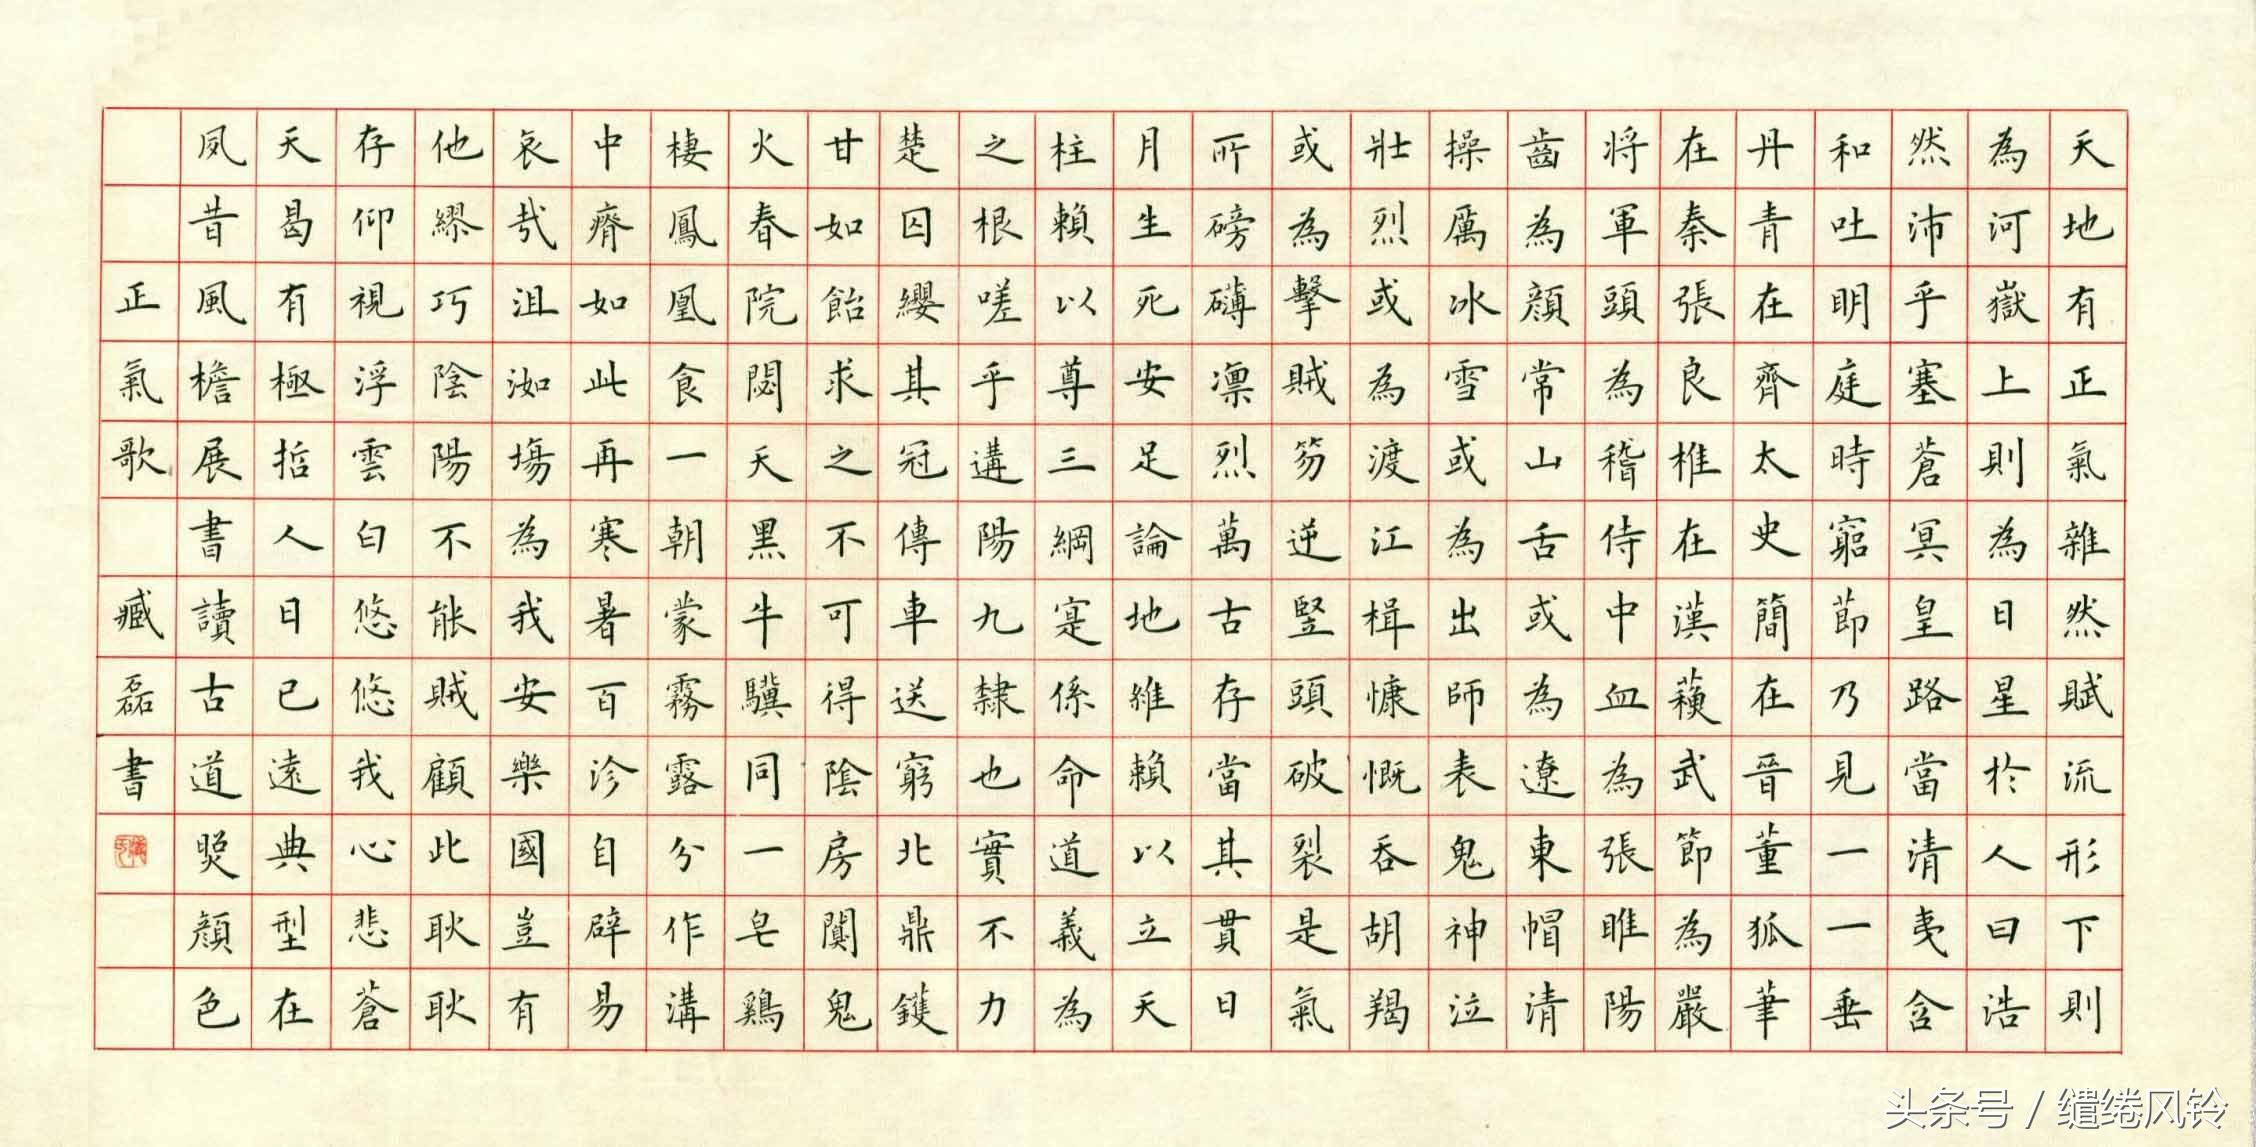 天地有正氣雜然賦流形下則
為河嶽上則為日星於人曰浩
然沛乎塞蒼冥皇路當清夷含
和吐明庭時窮節乃見一一垂
丹青在齊太史簡在晉董狐筆
在秦張良椎在漢蘇武節為嚴
將軍頭為稽侍中血為張睢陽
齒為顔常山舌或為遼東帽清
操厲冰雪或為出師表鬼神泣
壯烈或為渡江楫慷慨吞胡羯
或為擊賊笏逆豎頭破裂是氣
所磅礴凛烈萬古存當其貫日
月生死安足論地維賴以立天
柱賴以尊三綱寔係命道義為
之根嗟乎遘陽九隸也實不力
楚囚纓其冠傳車送窮北鼎鑊
甘如飴求之不可得陰房闃鬼
火春院閟天黑牛驥同一皂鷄
棲鳳凰食一朝蒙霧露分作溝
中瘠如此再寒暑百沴自辟易
哀哉沮洳場為我安樂國豈有
他繆巧陰陽不能賊顧此耿耿
存仰視浮雲白悠悠我心悲蒼
天曷有極哲人日已遠典型在
夙昔風檐展書讀古道照顔色
正氣歌 臧磊書
头条号 / 缱绻风铃